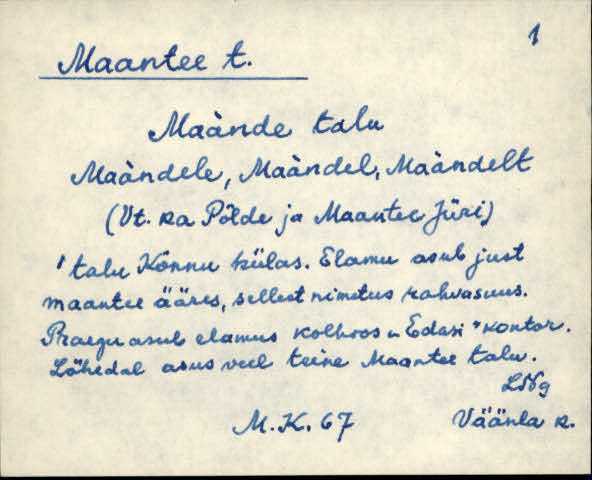 1
Maantee t.
Maànde talu
Maàndele, Maàndel, Maàndelt
(Vt. ka Põlde ja Maantee Jüri)
' talu Kõnnu külas. Elamu asub just
maantee ääres, sellest nimetus rahvasuus.
Praegu asub elamus kolhoos „Edasi" kontor.
Lähedal asus veel teine Maantee talu.
LNg
M.K. 67 Väänla k.